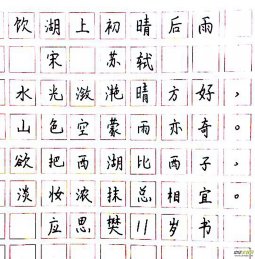 饮湖上初晴后雨
宋 苏轼
水光潋滟晴方好，
山色空蒙雨亦奇。
欲把西湖比西子，
淡妆浓抹总相宜。
应思樊 11岁书